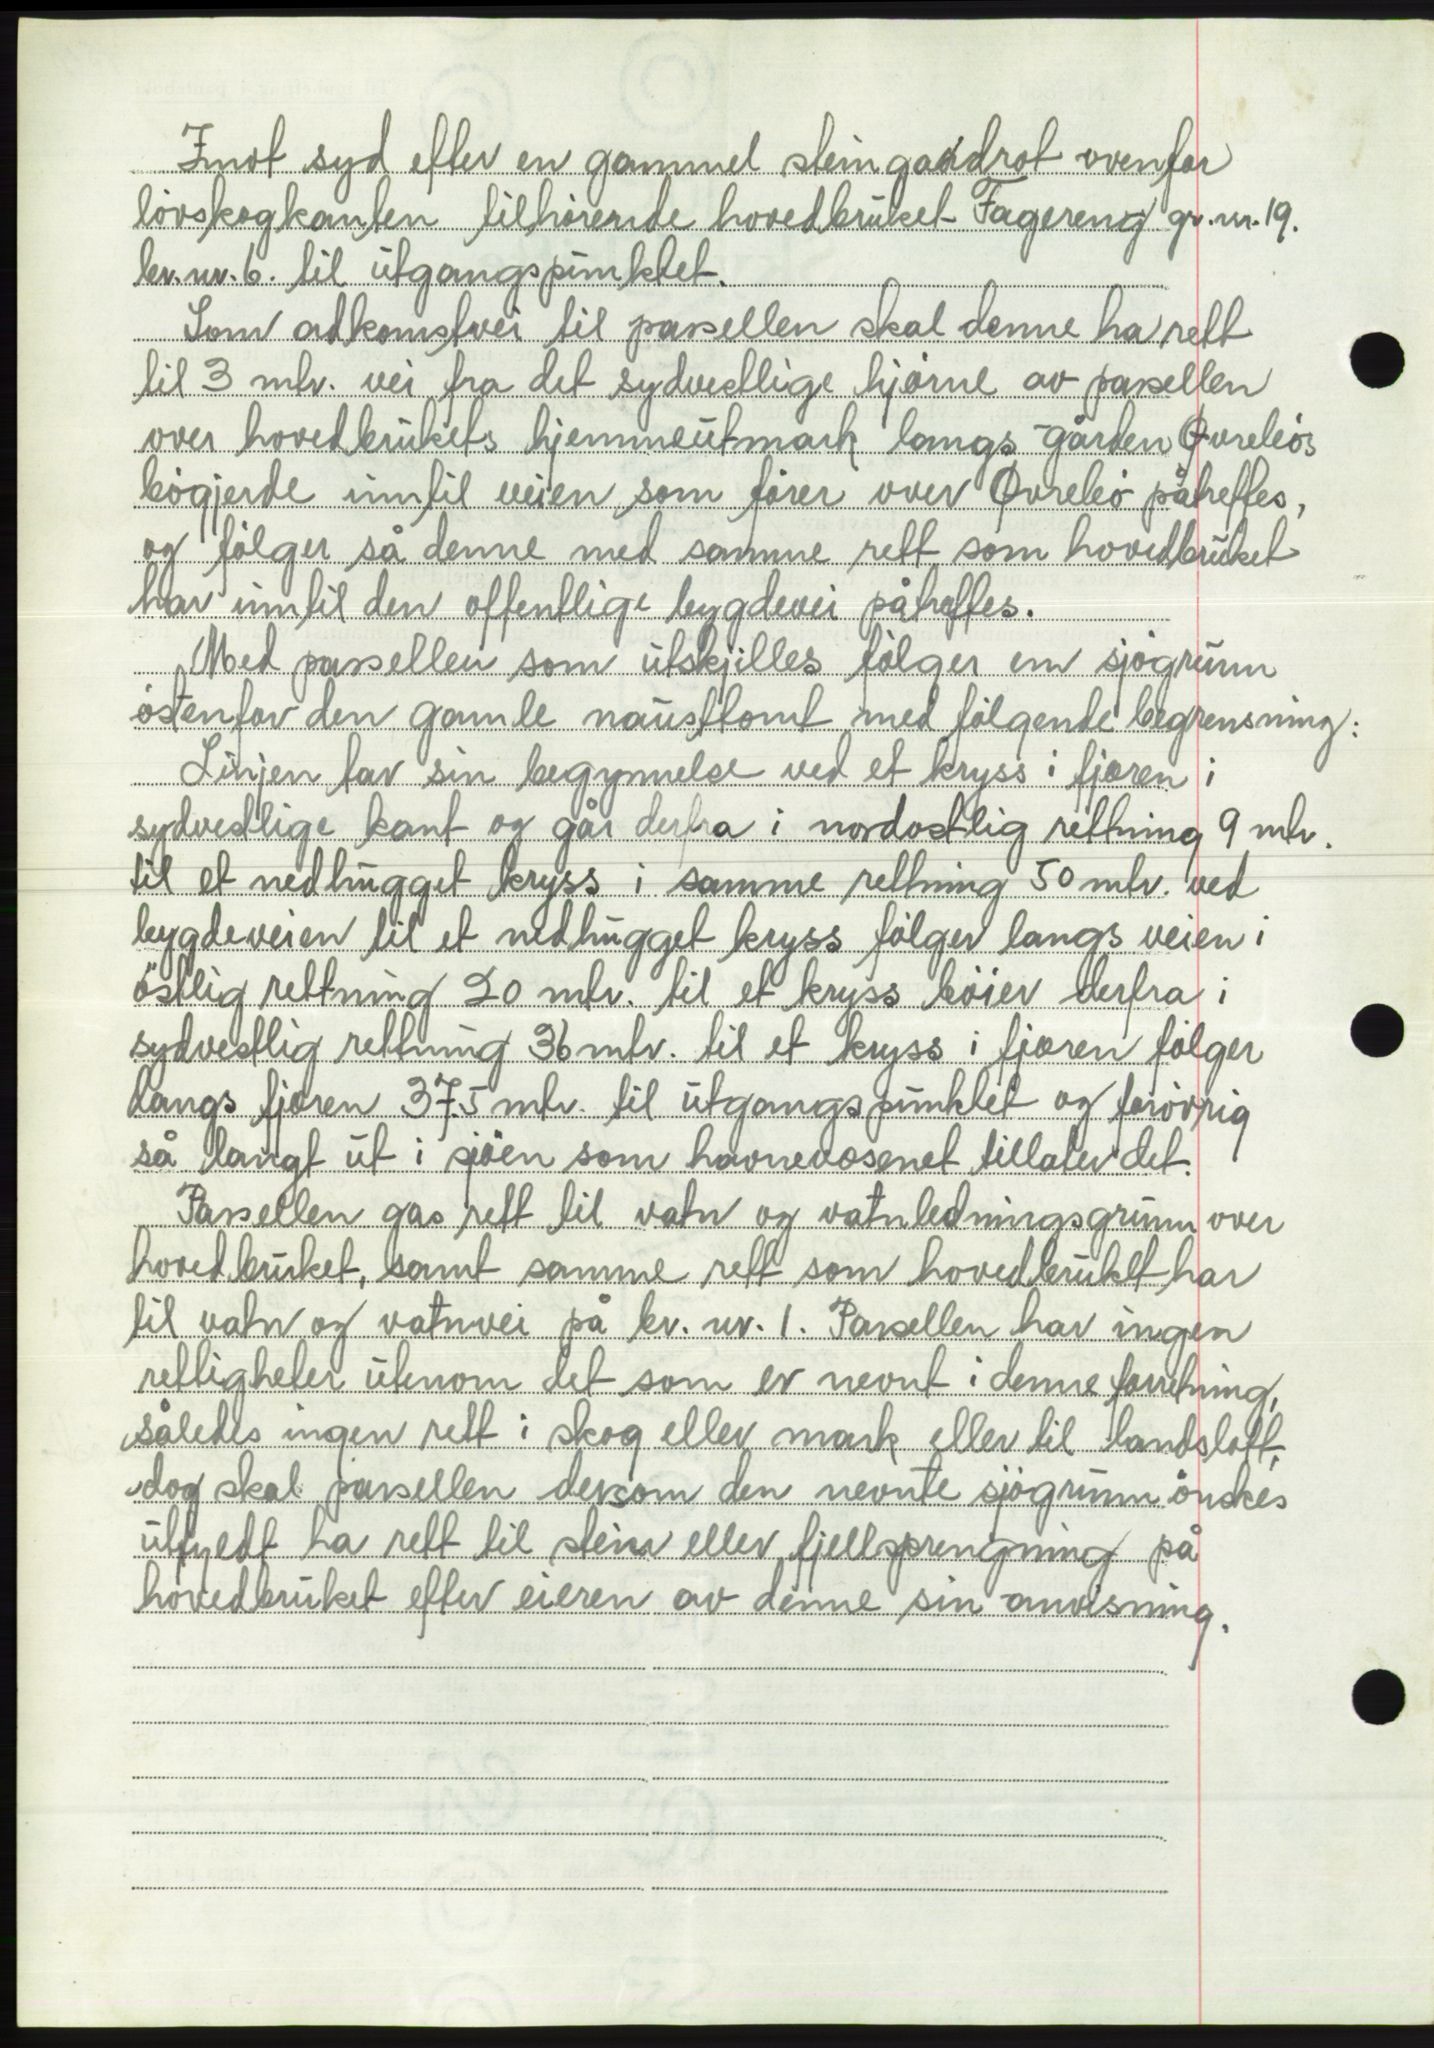 Imot syd efter en gammel steingardrot ovenfor
lövskogkanten tilhörende hovedbruket Fagereng gr.nr. 19.
br.nr. 6. til utgangspunktet.
Som adkomstvei til parsellen skal denne ha rett
til 3 mtr. vei fra det sydvestlige hjörne av parsellen
over hovedbrukets hjemmeutmark langs gården Øvrebös
bögjerde inntil veien som förer over Øvrebö påtreffes,
og fölger så denne med samme rett som hovedbruket
har inntil den offentlige bygdevei påtreffes.
Med parsellen som utskjilles fölger en sjögrunn
östenfor den gamle nausttomt med fölgende begrensning:
Linjen tar sin begynnelse ved et kryss i fjæren i
sydvestlige kant og går derfra i nordostlig rettning 9 mtr.
til et nedhugget kryss i samme rettning 50 mtr. ved
bygdeveien til et nedhugget kryss fölger langs veien i
östlig rettning 20 mtr. til et kryss böier derfra i
sydvestlig rettning 36 mtr. til et kryss i fjæren fölger
langs fjæren 37.5 mtr. til utgangspunktet og forövrig
så langt ut i sjöen som havnevesenet tillater det.
Parsellen gas rett til vatn og vatnledningsgrunn over
hovedbruket, samt samme rett som hovedbruket har
til vatn og vatnvei på br. nr. 1. Parsellen har ingen
rettigheter utenom det som er nevnt i denne forretning,
således ingen rett i skog eller mark eller til landslott,
dog skal parsellen dersom den nevnte sjögrunn önskes
utfyldt ha rett til stein eller fjellsprengning på
hovedbruket efter eieren av denne sin anvisning.